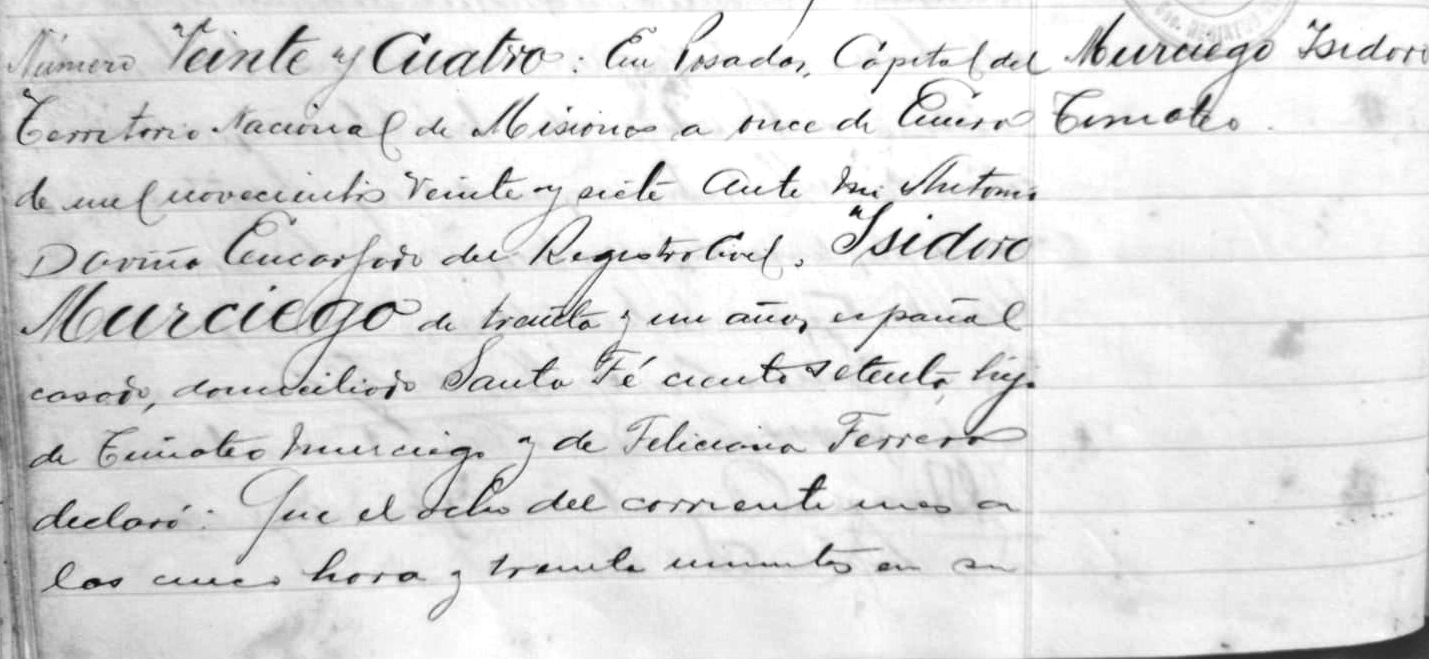 Número Veinte y Cuatro: En Posadas, Capital del
Territorio Nacional de Misiones a once de Enero
de mil novecientos veinte y siete Ante mi Antonio
Daviña Encargado del Registro Civil, Isidoro
Murciego de treinta y un años, español
casado, domiciliado Santa Fé ciento setenta, hijo
de Timoteo Murciego y de Feliciana Ferrero
declaró: Que el ocho del corriente mes a
las cinco hora y treinta minutos en su
Murciego Isidoro
Timoteo.